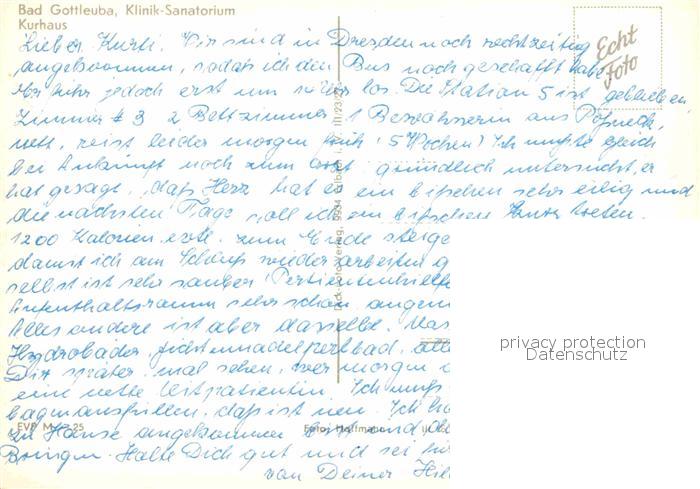 Bad Gottleuba, Klinik-Sanatorium
Kurhaus
Echt
Foto
Lieber Kurti. Wir sind in Dresden noch rechtzeitig
angekommen, sodaß ich den Bus noch geschafft habe
jedoch erst um los. Die Station 5 ist geblieben
Zimmer # 3 2 Bettzimmer 1 Bewohnerin aus Pößneck,
nett, reist leider morgen früh (5 Wochen) Ich mußte gleich
bei Ankunft noch zum Arzt gründlich untersucht, er
hat gesagt, daß Herz hat es ein bißchen sehr eilig und
die nächsten Tage soll ich ein bißchen kurz treten.
1200 Kalorien evtl. zum Ende steige
damit ich am Schluß wieder arbeiten
selbst ist sehr sauber
Aufenthaltsraum sehr schön angen
Alles andere ist aber dasselbe. Mas
Hydrobäder, Fichtennadelperlbad, all
Dir später, mal sehen, wer morgen
eine nette Mitpatientin. Ich muß
bagen ausfüllen, daß ist neu. Ich
zu Hause angekommen bist und
Bringen. Halte Dich gut und sei
von Deiner
privacy protection
Datenschutz
EVP M -,25
Foto: Hoffmann